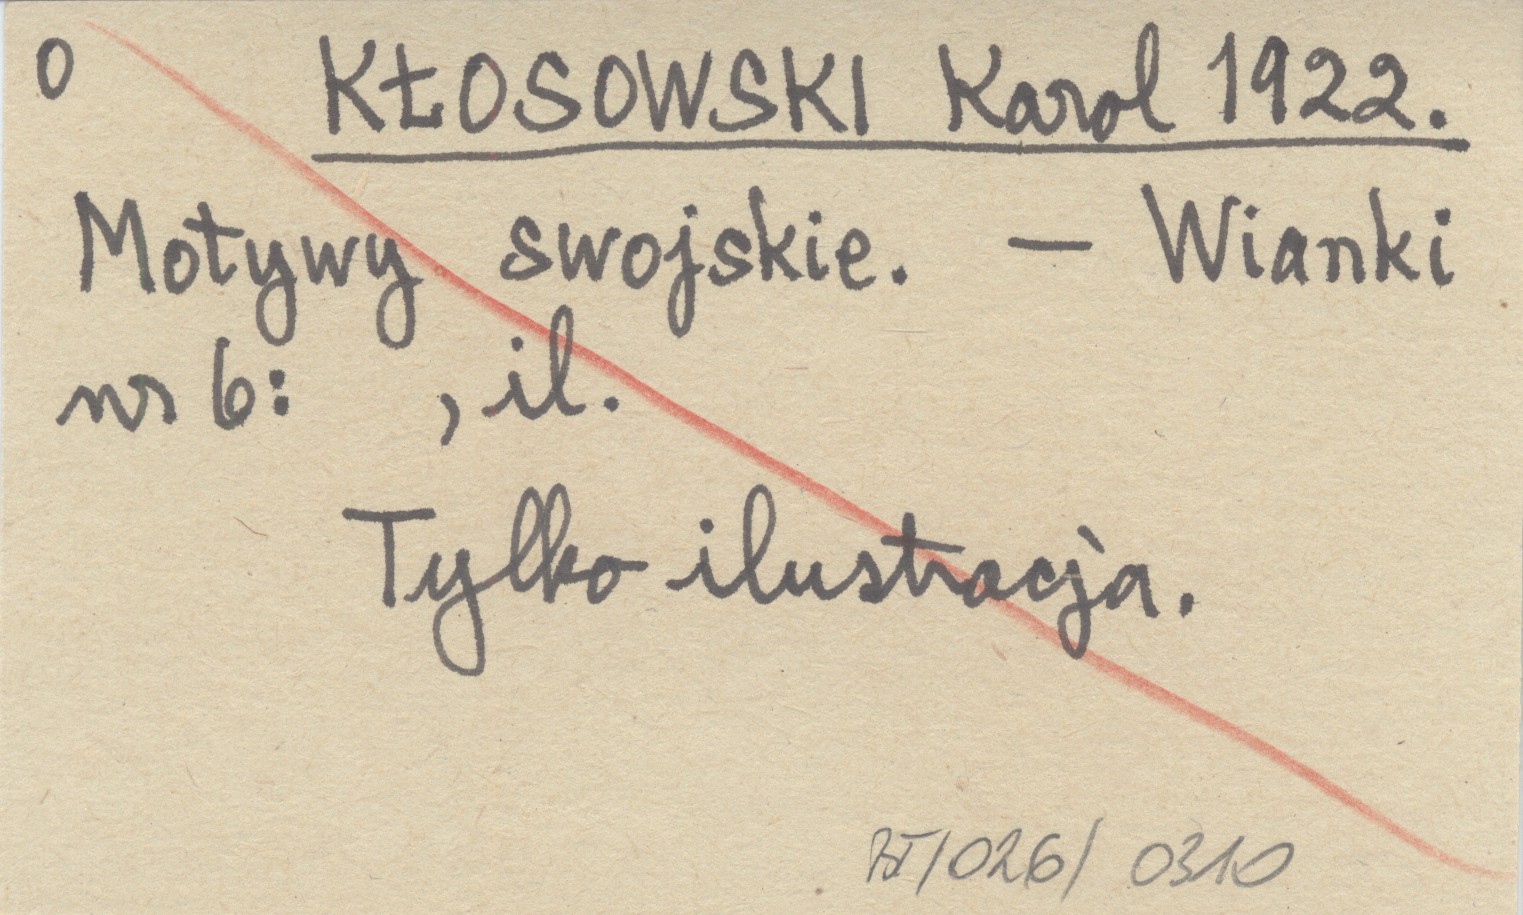 0 KŁOSOWSKI Karol 1922.
Motywy swojskie. — Wianki
nr 6: , il.
Tylko ilustracja.
/026/ 0310